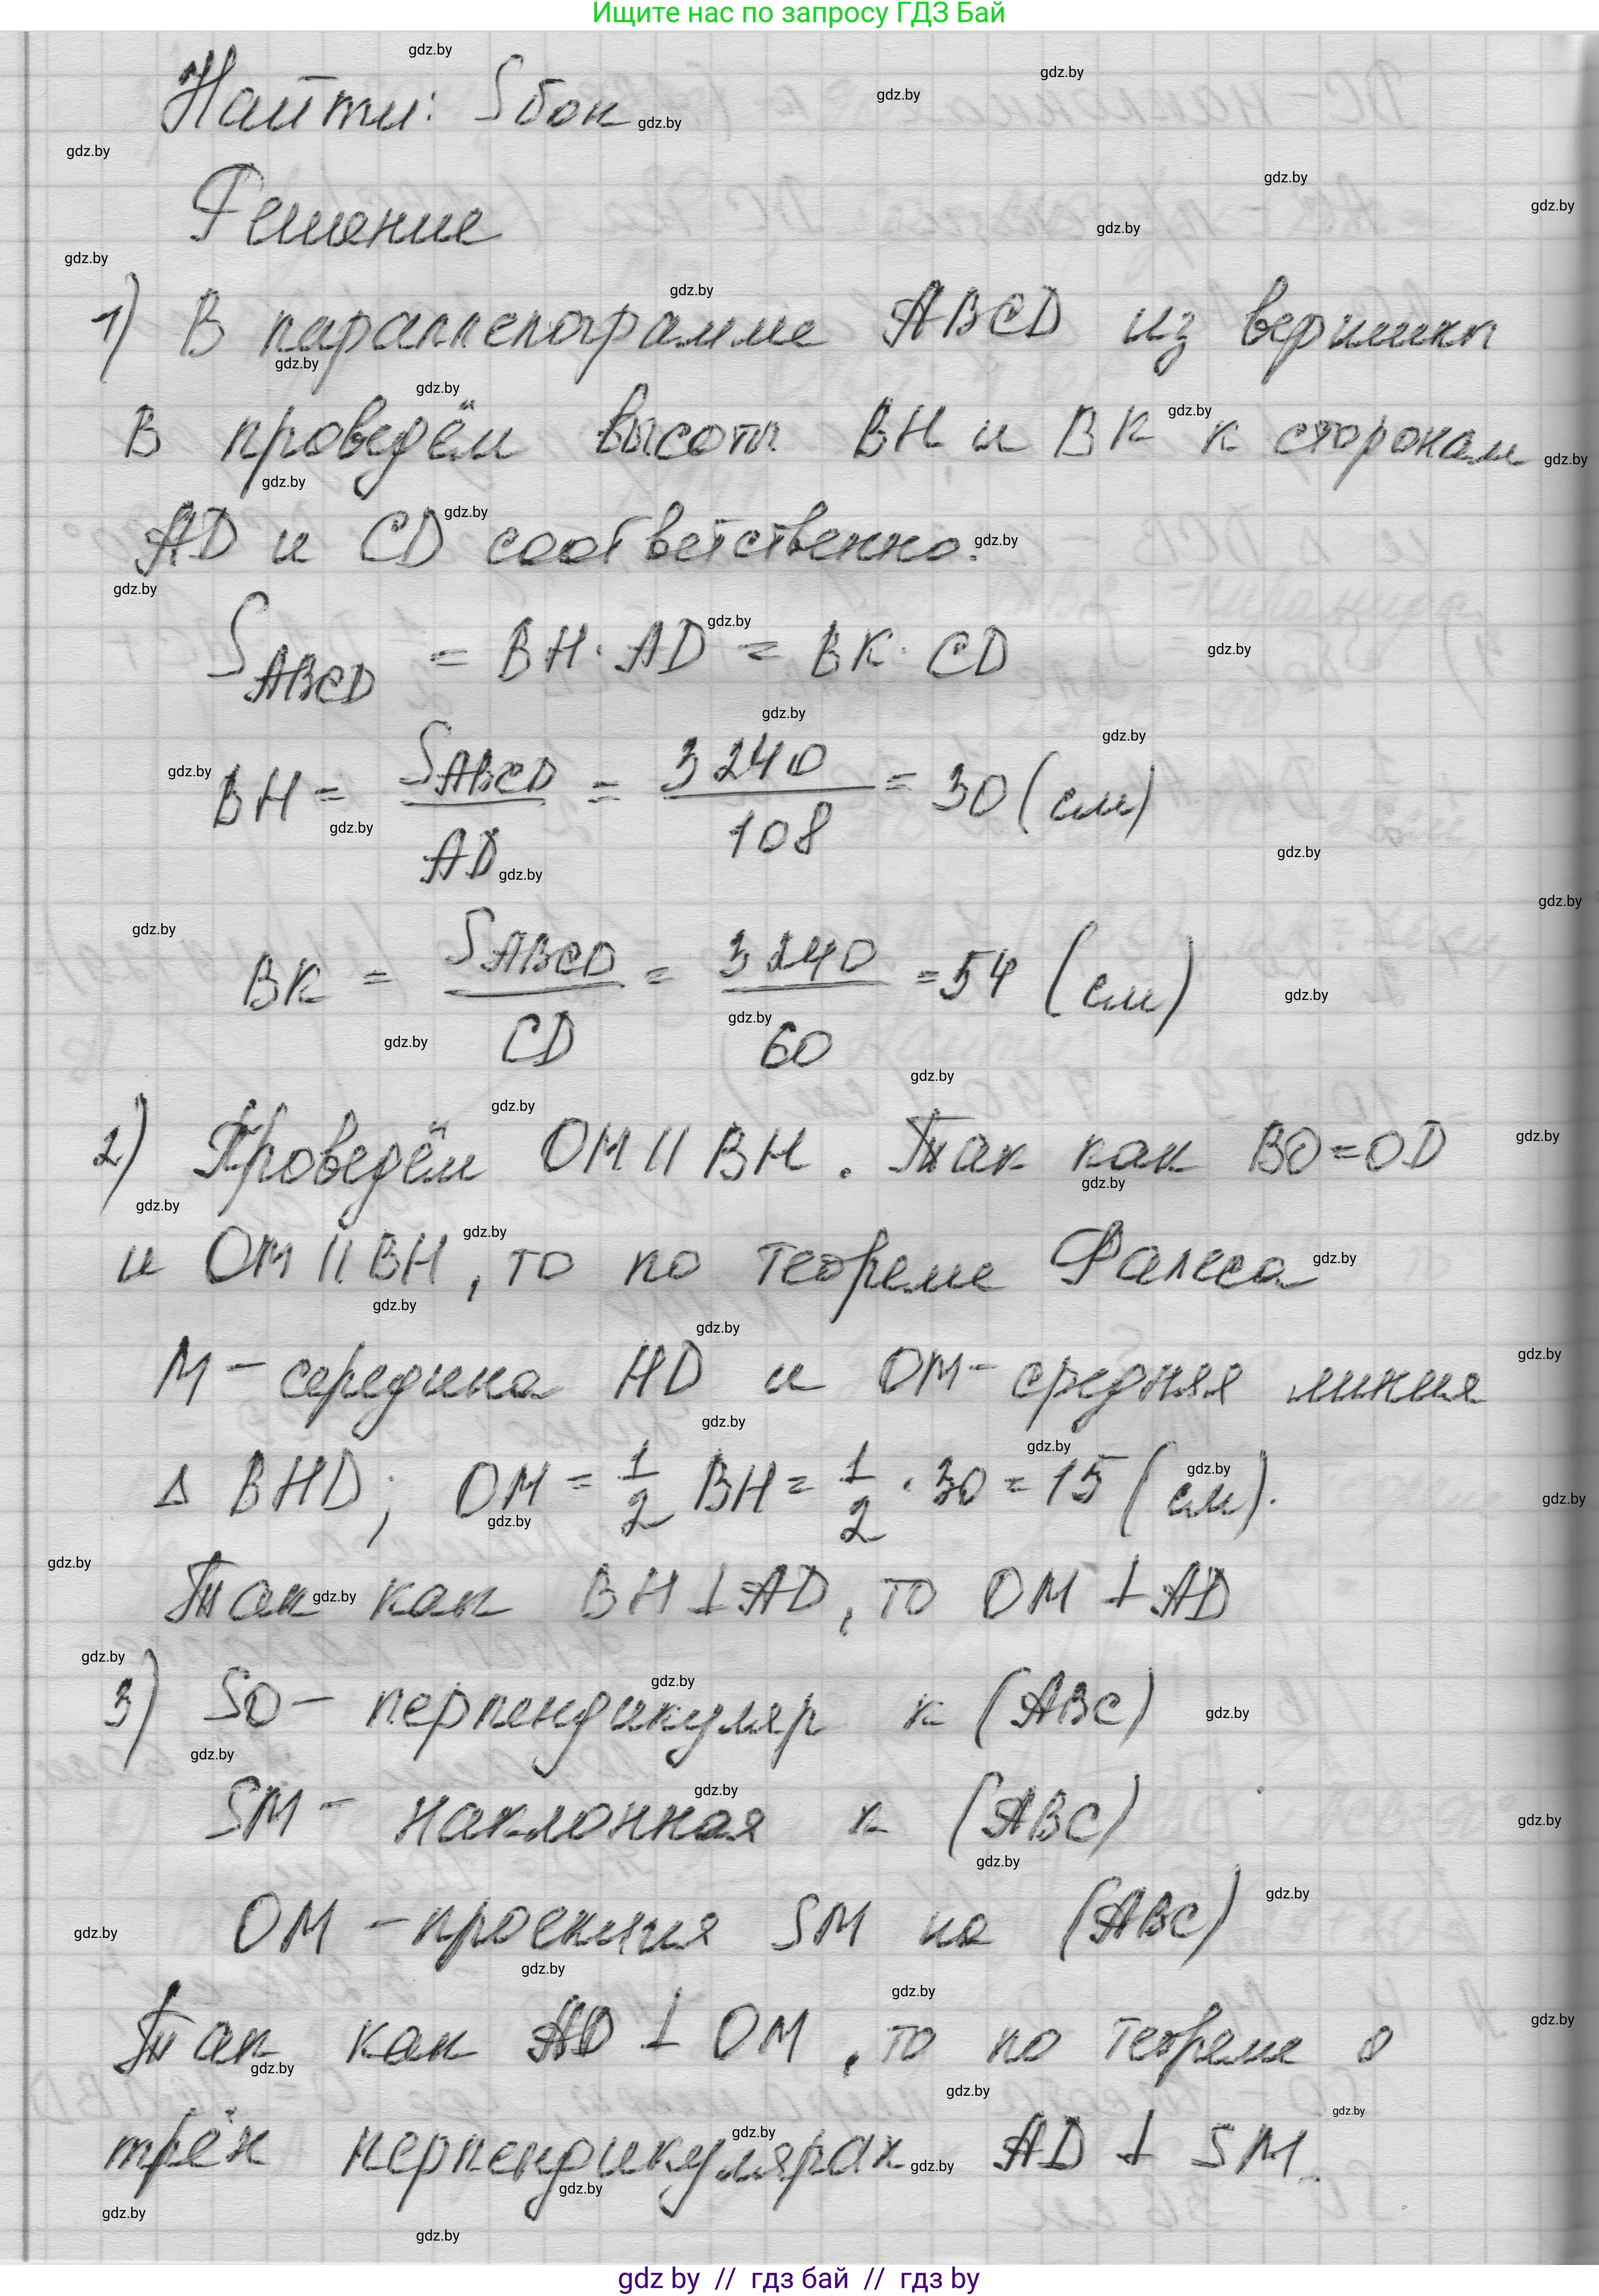 Ищите нас по запросу ГДЗ Бай
Найти: Sбок
Решение
1) В параллелограмме ABCD из вершины
B проведём высоты BH и BK к сторонам
AD и CD соответственно.
S_ABCD = BH · AD = BK · CD
BH = S_ABCD / AD = 3240 / 108 = 30 (см)
BK = S_ABCD / CD = 3240 / 60 = 54 (см)
2) Проведём OM || BH. Так как BO = OD
и OM || BH, то по теореме Фалеса
M - середина HD и OM - средняя линия
Δ BHD; OM = 1/2 BH = 1/2 · 30 = 15 (см).
Так как BH ⊥ AD, то OM ⊥ AD
3) SO - перпендикуляр к (ABC)
SM - наклонная к (ABC)
OM - проекция SM на (ABC)
Так как AD ⊥ OM, то по теореме о
трёх перпендикулярах AD ⊥ SM.
gdz by // гдз бай // гдз by